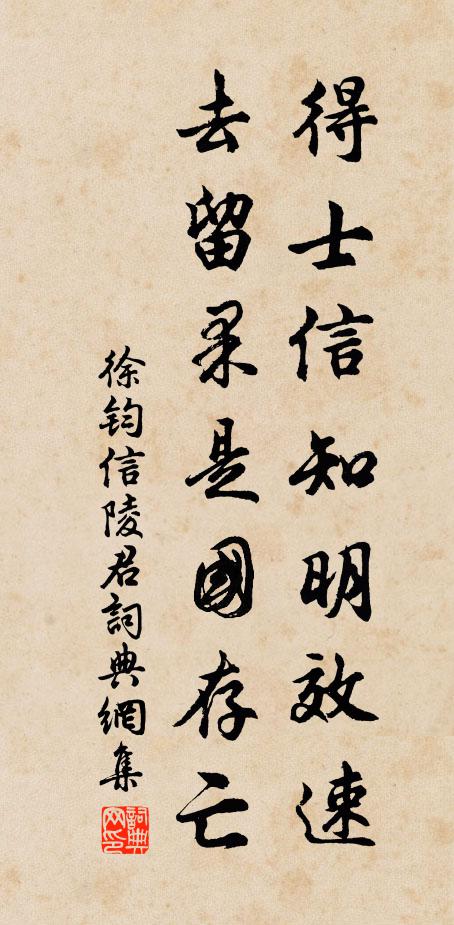 得士信知明效速
去留果是國存亡
徐鈞信陵君詞典網集
詞典
网印